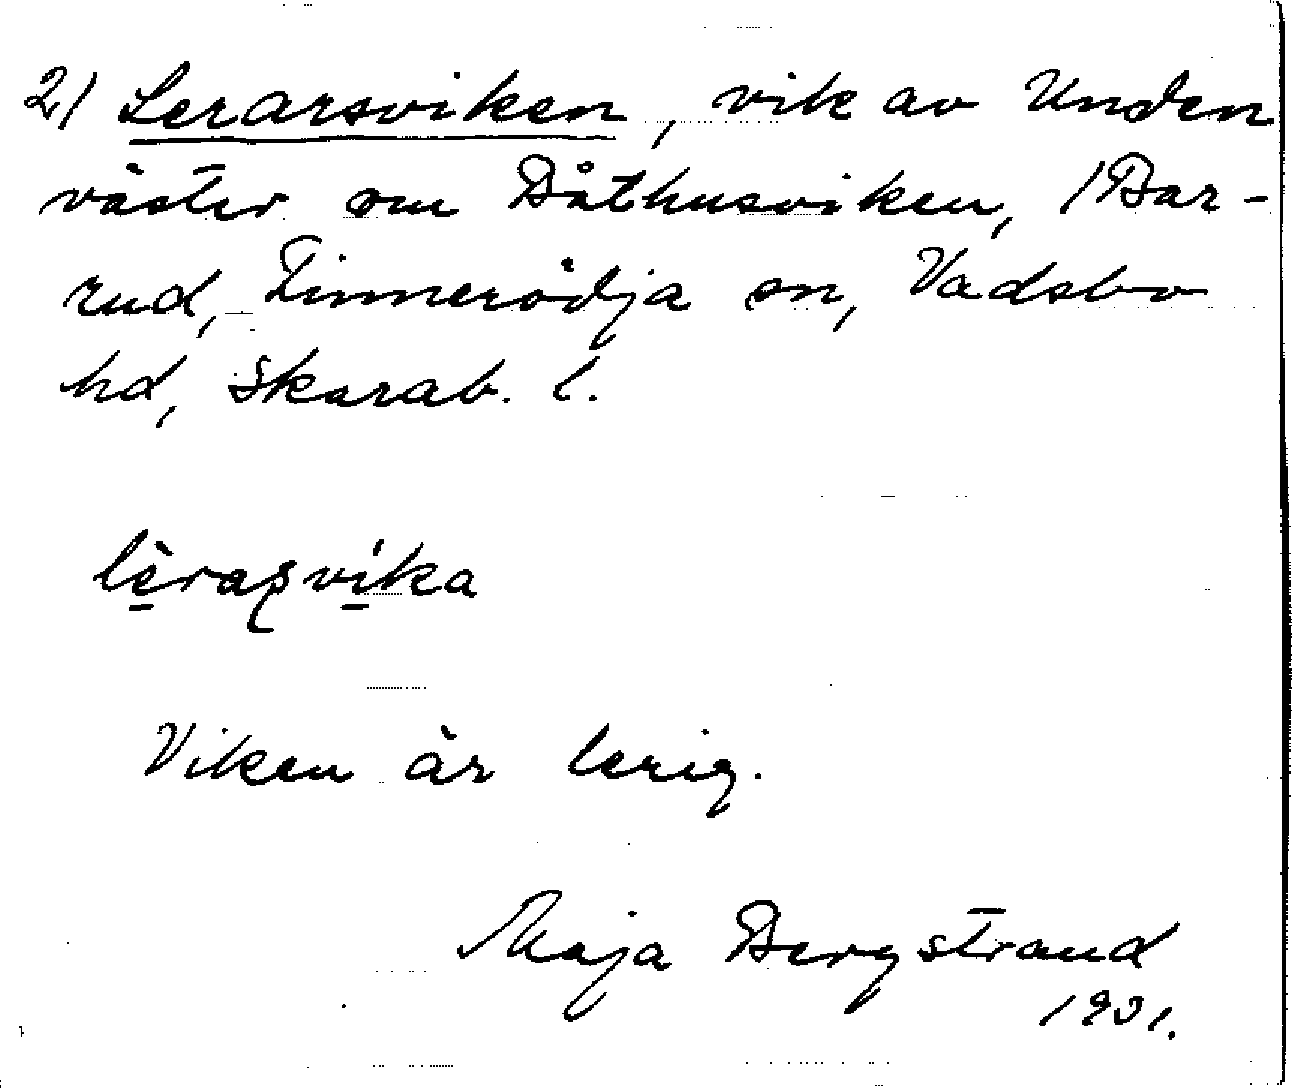 2) Lerarsviken, vik av Unden
väster om Båthusviken, /Bar-
rud, Tinnerödja sn, Vadsbo
hd, Skarab. l.
lèrasvíka
Viken är lerig.
Maja Bergstrand
1931.